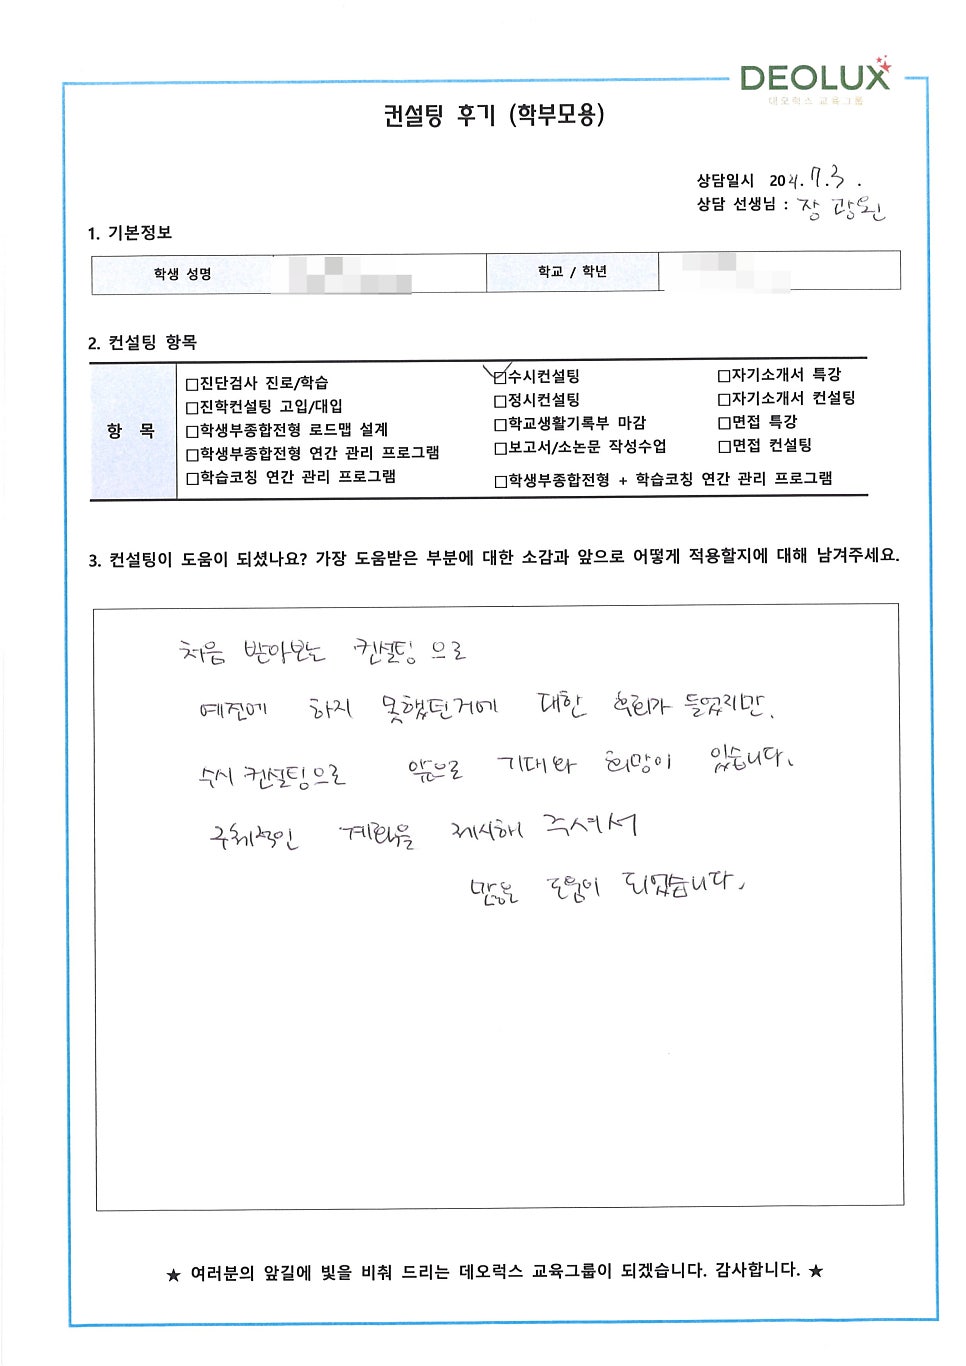 DEOLUX
데오럭스 교육그룹
컨설팅 후기 (학부모용)
상담일시 2021. 7. 3 .
상담 선생님 : 장 광원
1. 기본정보
학생 성명
학교 / 학년
2. 컨설팅 항목
항 목
□진단검사 진로/학습
□진학컨설팅 고입/대입
□학생부종합전형 로드맵 설계
□학생부종합전형 연간 관리 프로그램
□학습코칭 연간 관리 프로그램
☑수시컨설팅
□정시컨설팅
□학교생활기록부 마감
□보고서/소논문 작성수업
□학생부종합전형 + 학습코칭 연간 관리 프로그램
□자기소개서 특강
□자기소개서 컨설팅
□면접 특강
□면접 컨설팅
3. 컨설팅이 도움이 되셨나요? 가장 도움받은 부분에 대한 소감과 앞으로 어떻게 적용할지에 대해 남겨주세요.
처음 받아보는 컨설팅으로
예전에 하지 못했던거에 대한 후회가 들었지만,
수시 컨설팅으로 앞으로 기대와 희망이 있습니다.
구체적인 계획을 제시해 주셔서
많은 도움이 되었습니다.
★ 여러분의 앞길에 빛을 비춰 드리는 데오럭스 교육그룹이 되겠습니다. 감사합니다. ★